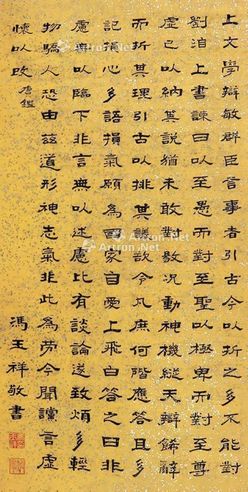 上文學辯敏群臣言事者引古以折之多不能對
劉洎上書諫曰以至愚而對至聖以極卑而對至尊
虛己以納其說猶未敢對敭況動神機縱天辯飾辭
而折其理引古以排其議欲令凡庶何階應答且多
記損心多語損氣願為國家自愛上飛白答之曰非
慮無以臨下非言無以述慮比有談論遂致煩多輕
物驕人恐由茲道形神志氣非此為勞今聞讜言虛
懷以改 唐鑑
馮玉祥敬書
Artron.Net